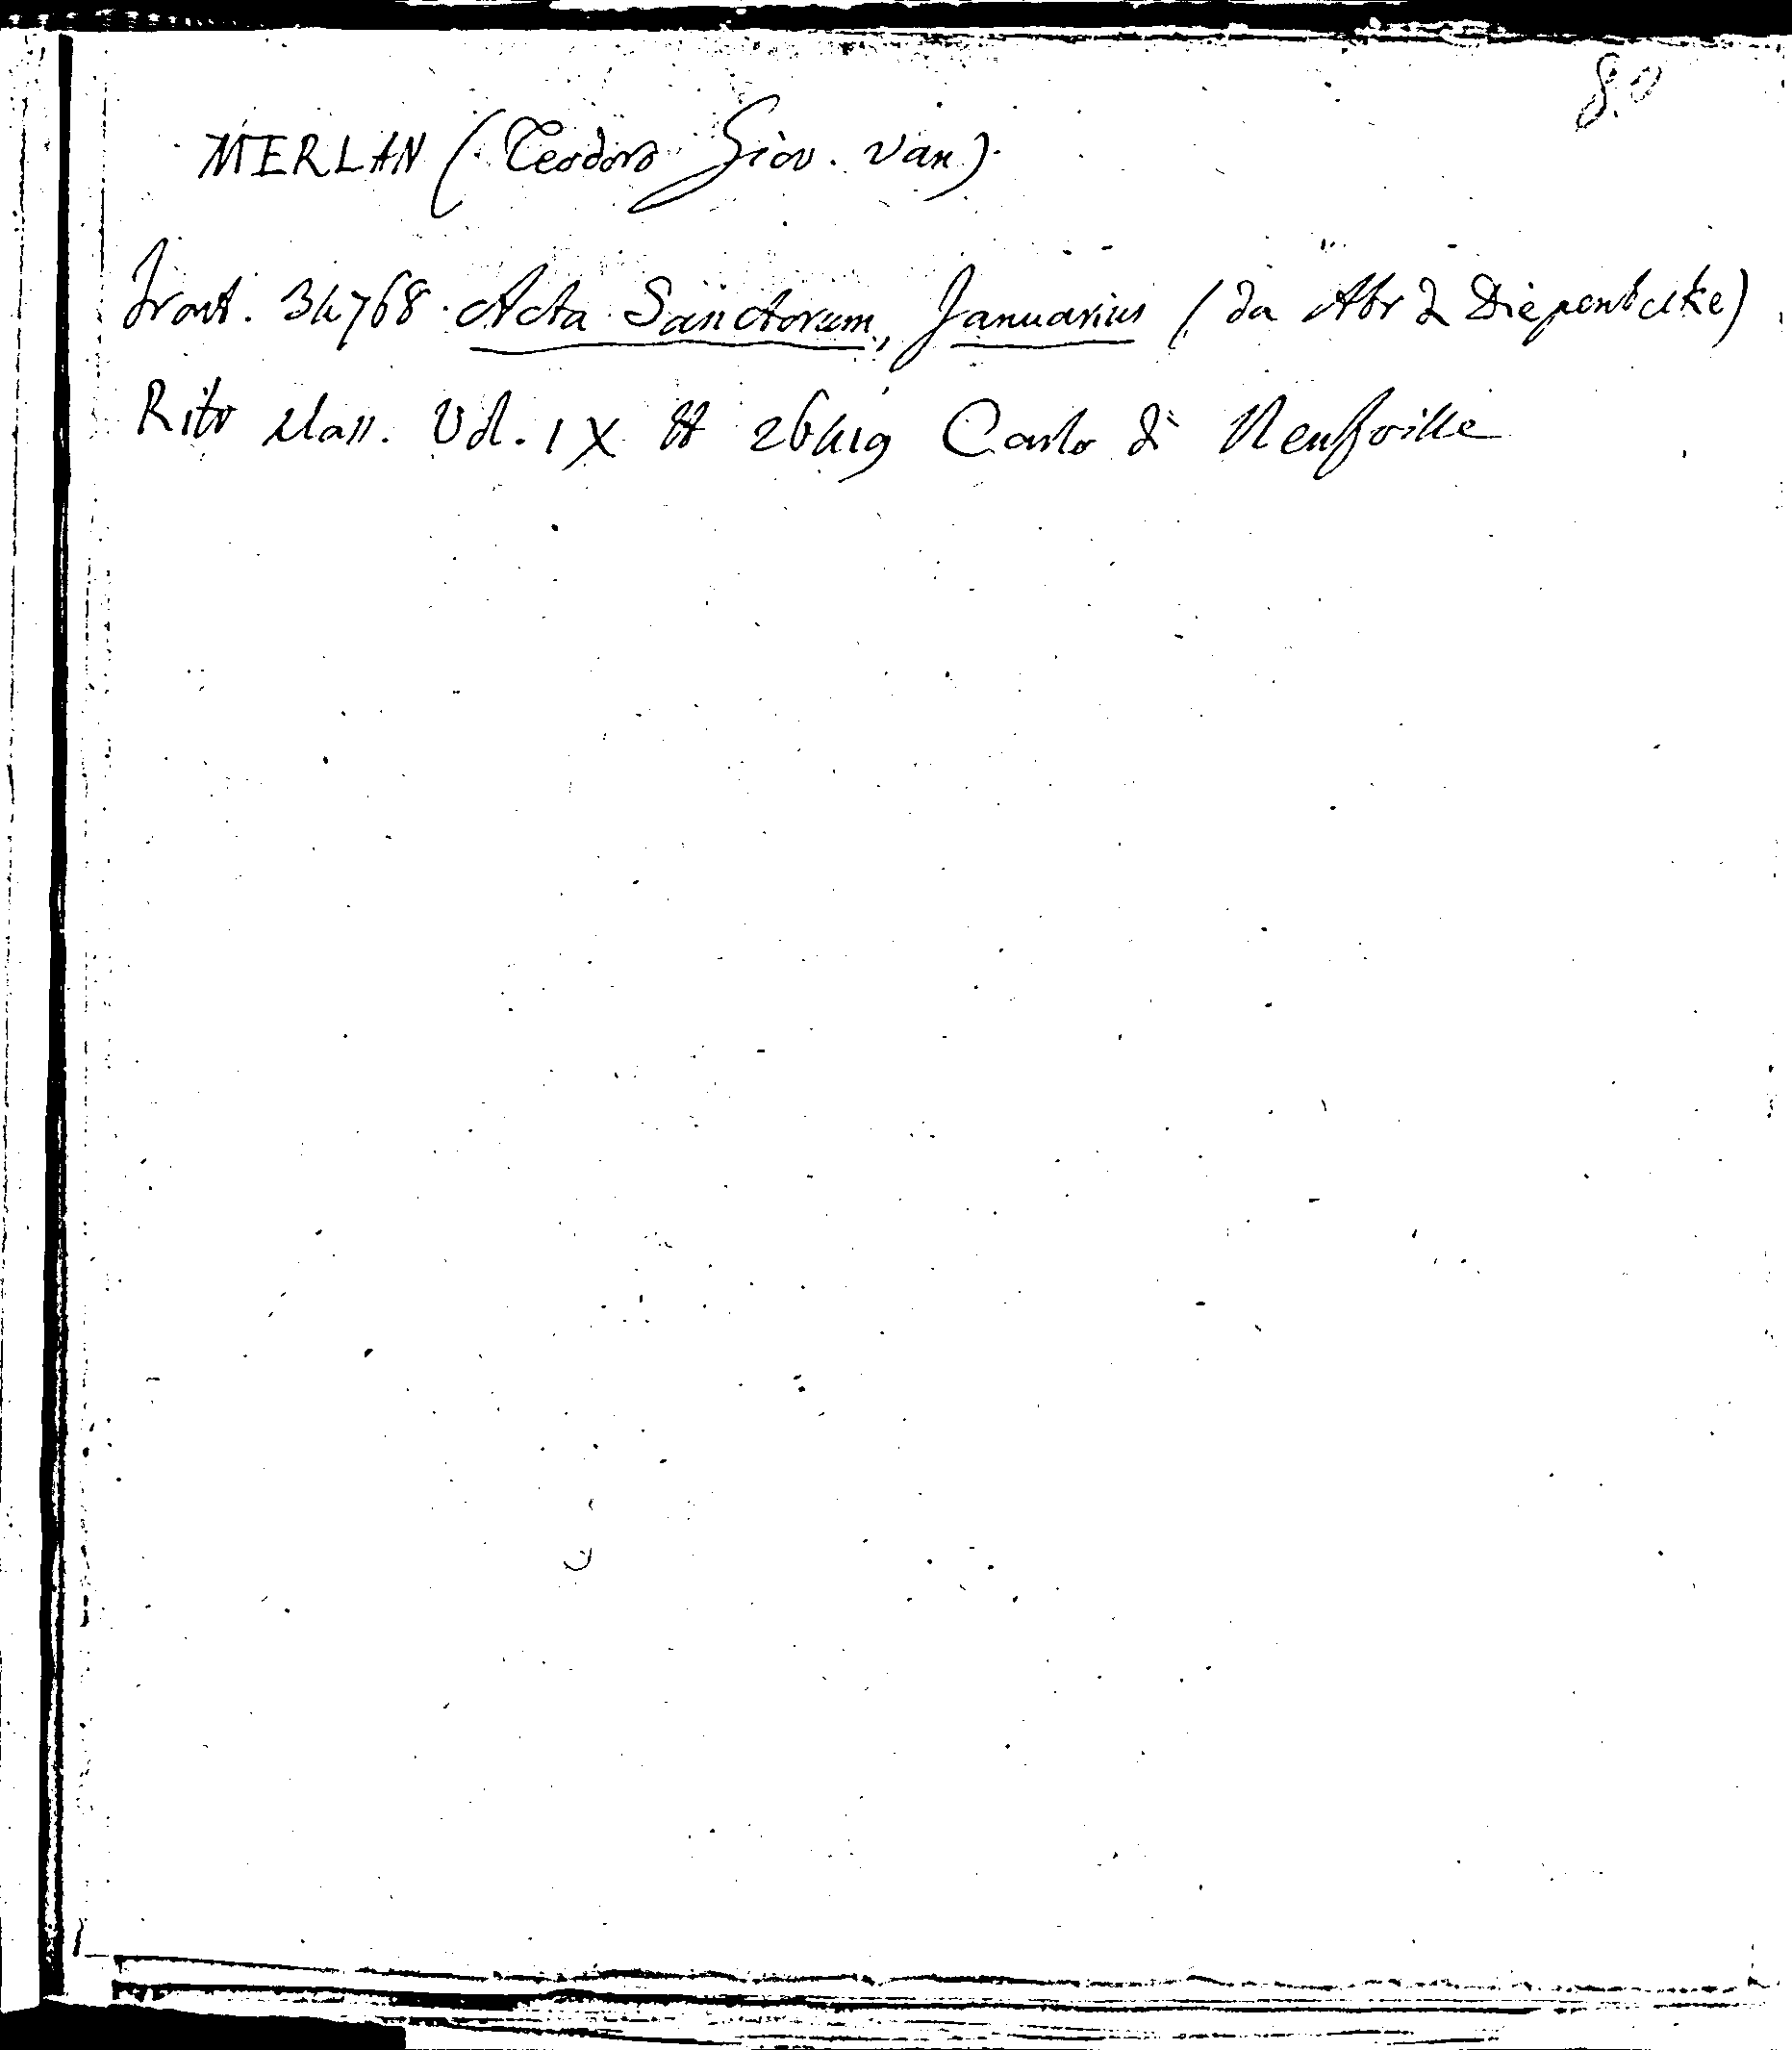 80
MERLAN (Teodoro Giov. van).
Front. 34768. Acta Sanctorum, Januarius (da Abr di Diepenbeke)
Ritr Mass. Vol. IX tt 26419 Carlo di Neufville